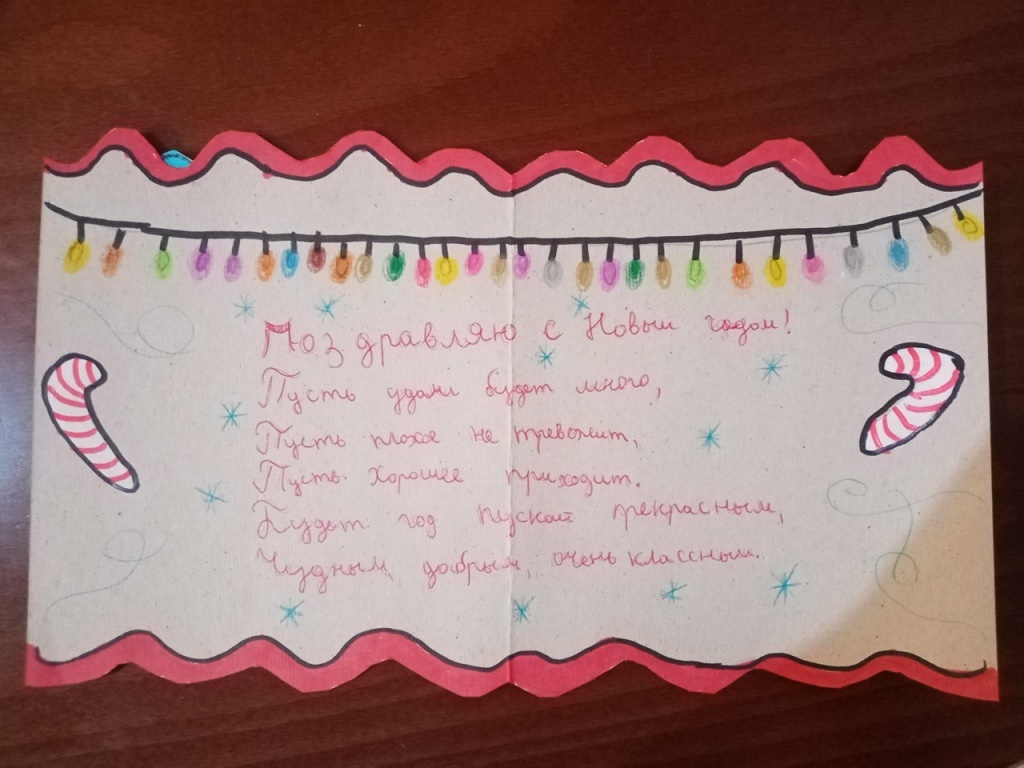 Поздравляю с Новым годом!
Пусть удачи будет много,
Пусть плохое не тревожит,
Пусть хорошее приходит.
Будет год пускай прекрасным,
Чудным, добрым, очень классным.